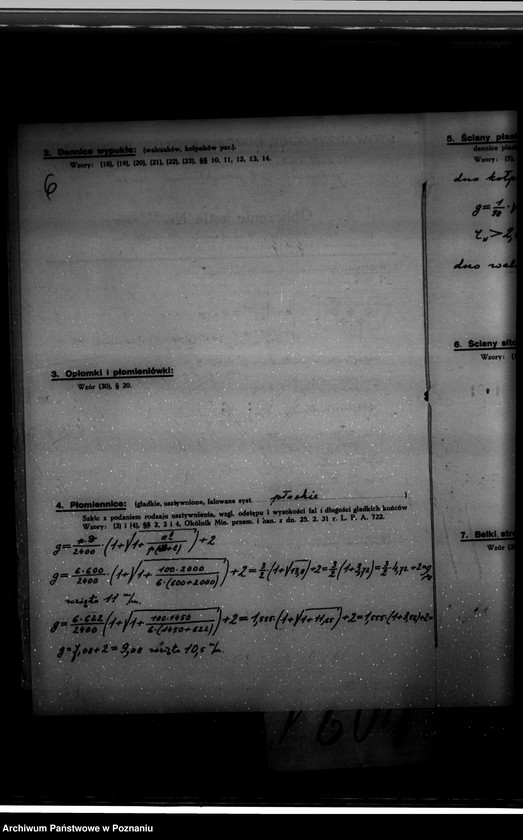 2. Dennice wypukłe: (walczaków, kołpaków par.).
Wzory: (18), (19), (20), (21), (22), (23), §§ 10, 11, 12, 13, 14.
6
3. Opłomki i płomieniówki:
Wzór (30), § 20.
4. Płomiennice: (gładkie, usztywnione, falowane syst. płaskie )
Szkic z podaniem rodzaju usztywnienia, wzgl. odstępu i wysokości fal i długości gładkich końców
Wzory: (3) i (4), §§ 2, 3 i 4, Okólnik Min. przem. i han. z dn. 25. 2. 31 r. L. P. A. 722.
g = p.d/2400 · (1+√1+ al/p(d+l)) + 2
g = 6·600/2400 · (1+√1+ 100·2000/6·(600+2000)) + 2 = 3/2 (1+√13,0) + 2 = 3/2 (1+3,72) = 3/2 · 4,72 + 2 = 9
wzięto 11 m/m.
g = 6·622/2400 · (1+√1+ 100·1450/6·(1450+622)) + 2 = 1,555 (1+√1+11,65) + 2 = 1,555 (1+3,55) + 2 =
g = 7,08 + 2 = 9,08 wzięto 10,5 m/m.
5. Ściany
Wzory: (5),
dno
g = 1/30 ·
dno
6. Ściany
Wzory:
7. Belki
Wzór
Archiwum Państwowe w Poznaniu